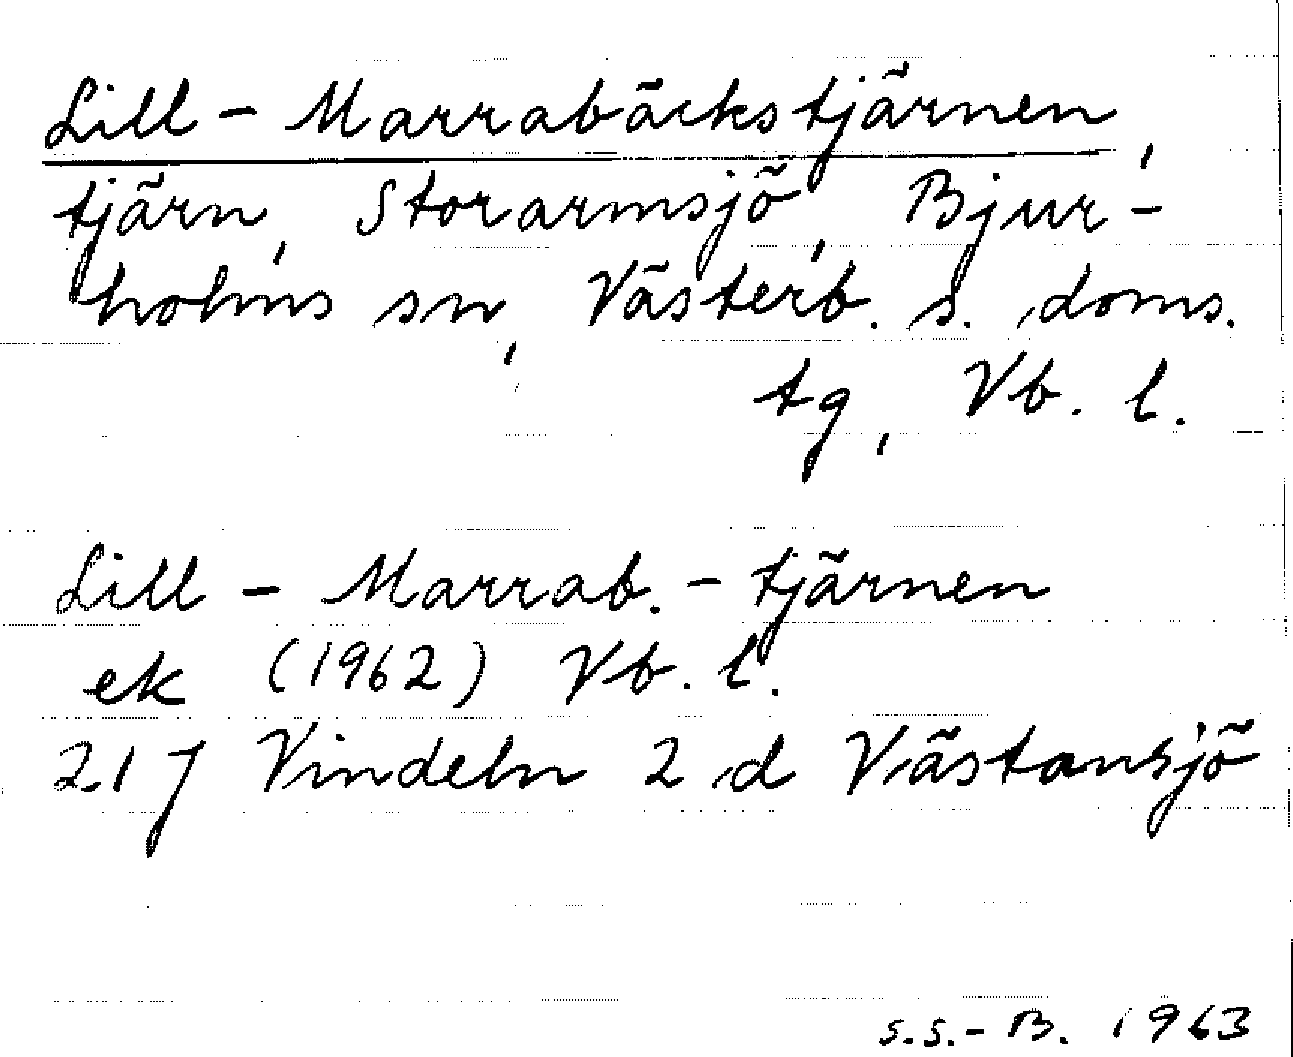 Lill-Marrabäckstjärnen,
tjärn, Storarmsjö, Bjur-
holms sn, Västerb. s. doms.
tg, Vb. l.
Lill-Marrab.-tjärnen
ek (1962) Vb. l.
21J Vindeln 2 d Västansjö
S.S.-B. 1963